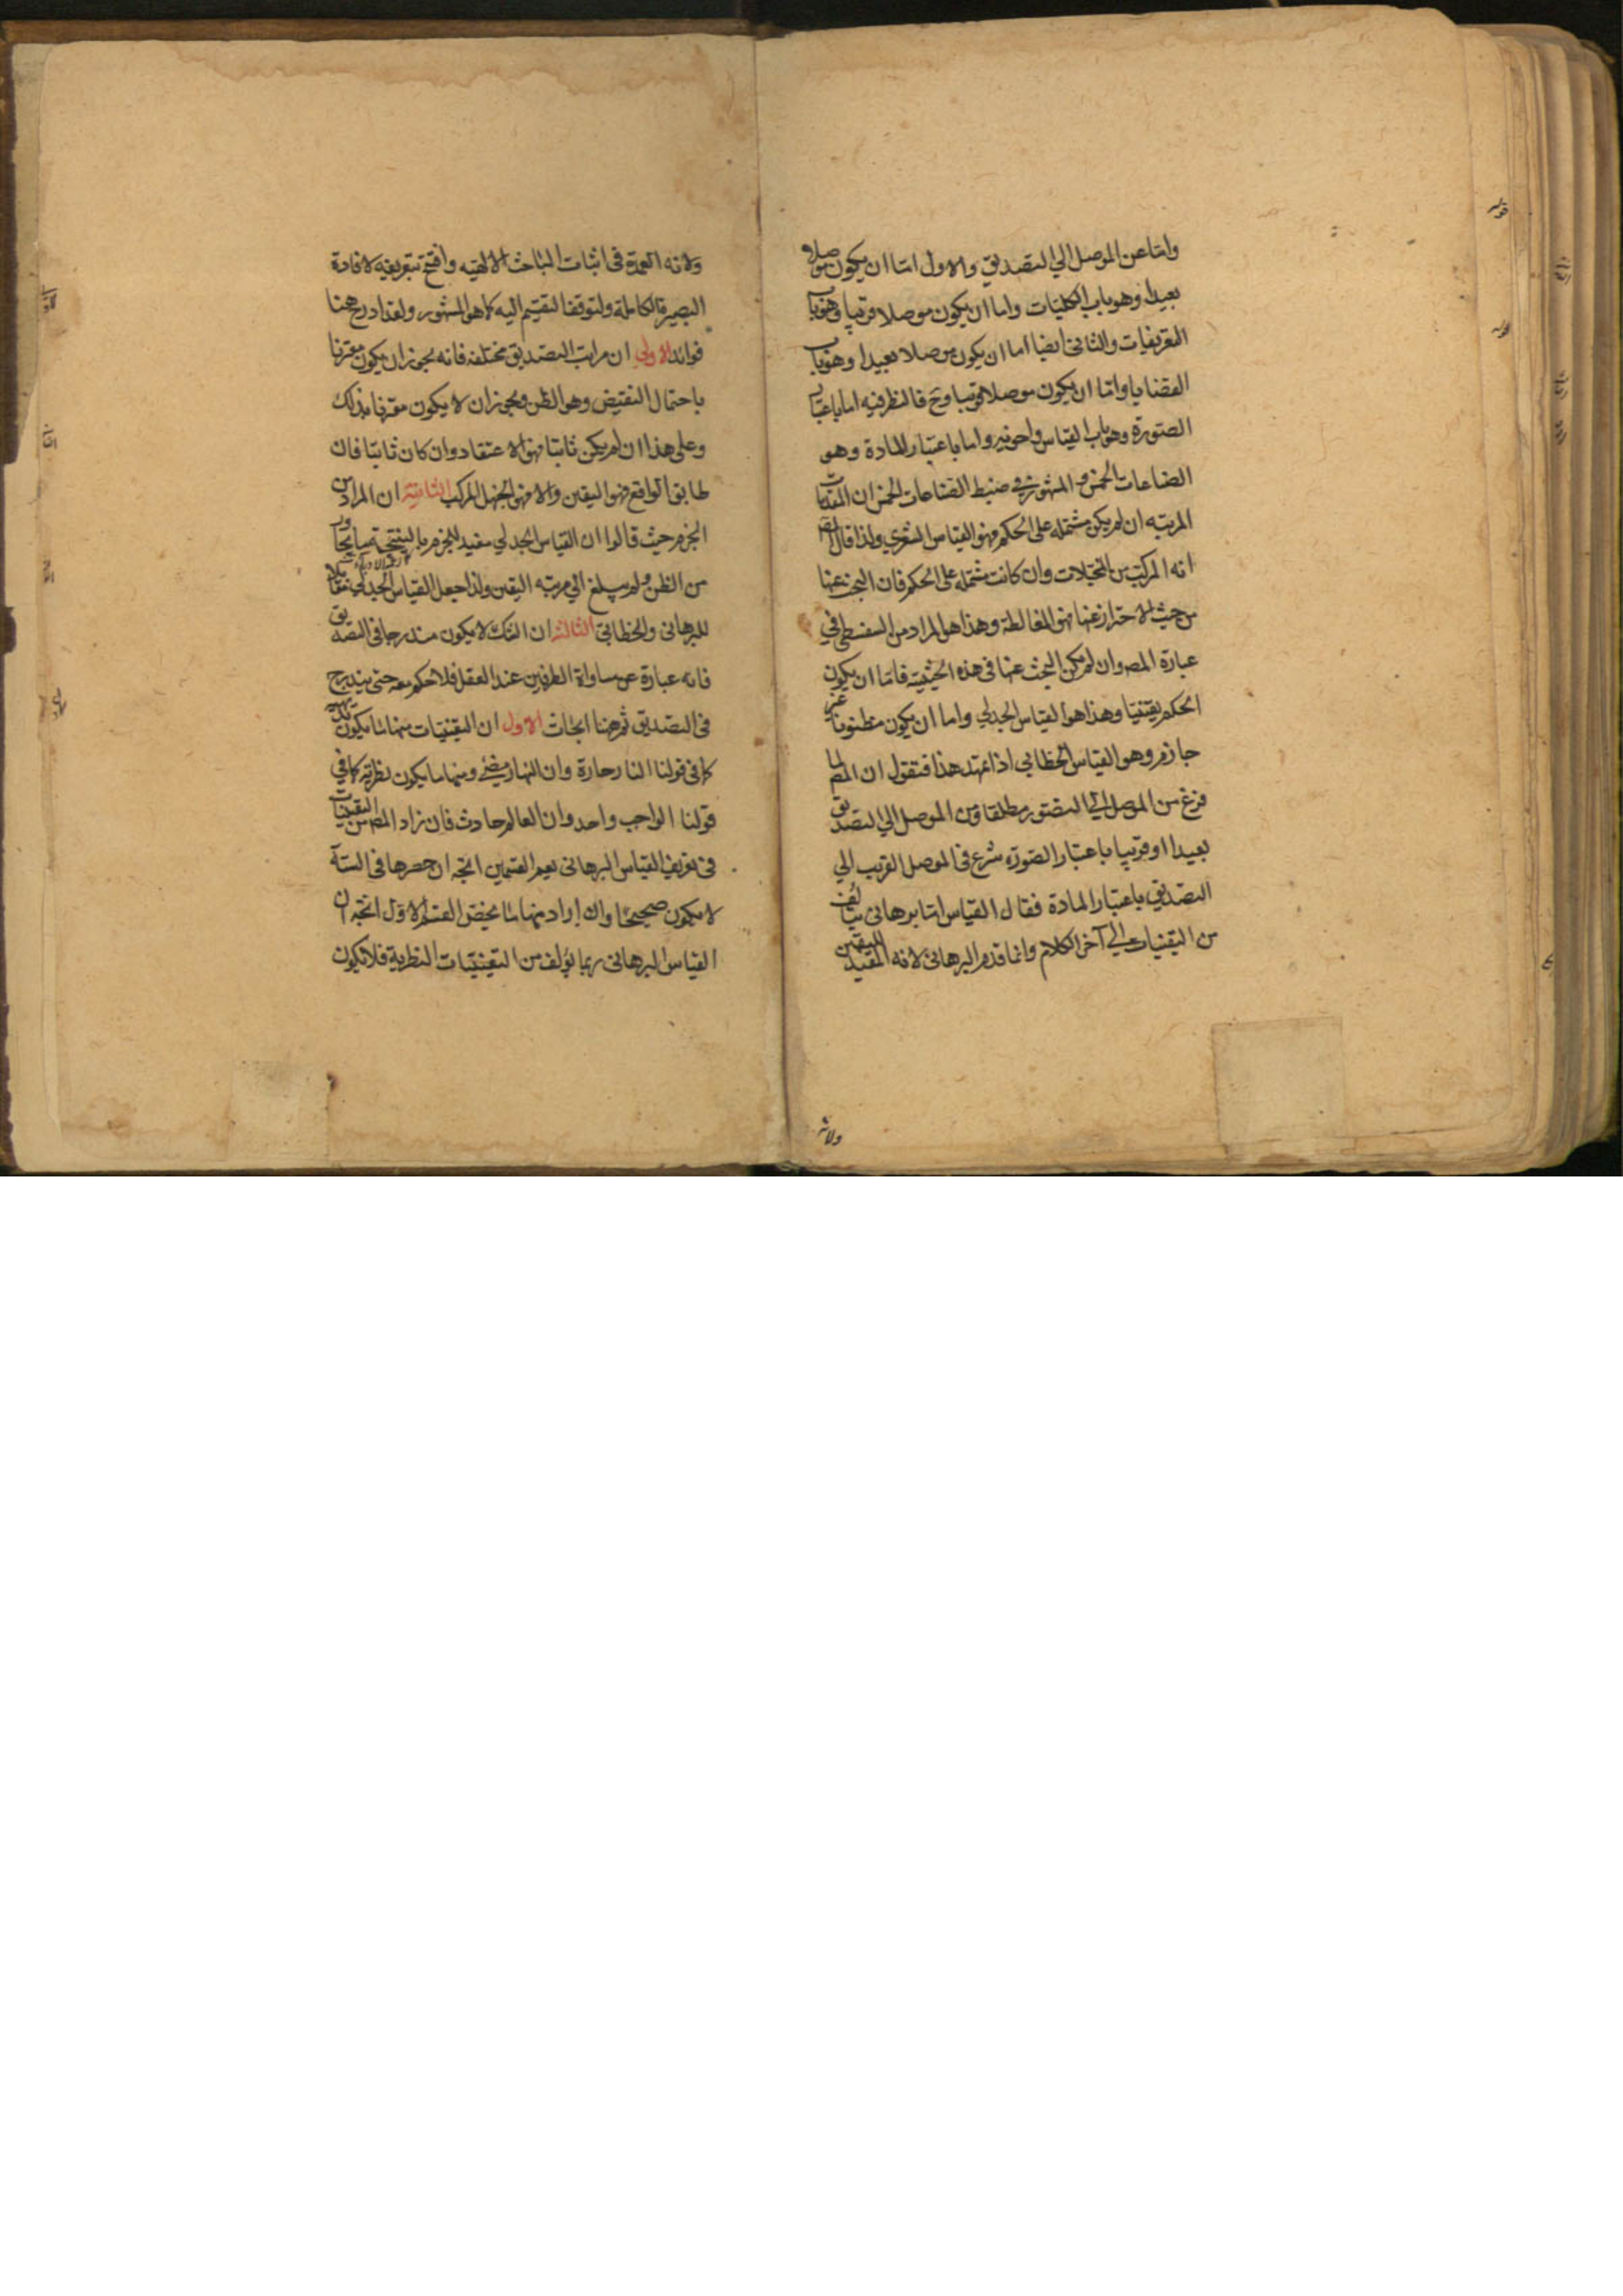 واما عن الموصل الي التصديق والاول اما ان يكون موصلا
بعيدا وهو باب الكليات واما ان يكون موصلا قريبا وهو باب
التعريفات والثاني ايضا اما ان يكون موصلا بعيدا وهو باب
القضايا واما ان يكون موصلا قريبا وح فالنظر فيه اما باعتبار
الصورة وهو باب القياس واخويه واما باعتبار المادة وهو
الصناعات الخمس والمشهور في ضبط الصناعات الخمس ان المقدمات
المرتبه ان لم يكن مشتمله على الحكم فهو القياس الشعري ولذا قال المص
انه المركب من المخيلات وان كانت مشتمله على الحكم فان البحث عنها
من حيث الاحتراز عنها فهو المغالطة وهذا هو المراد من السفسطي في
عبارة المص وان لم يكن البحث عنها في هذه الحيثية فاما ان يكون
الحكم يقينيا وهذا هو القياس الجدلي واما ان يكون مظنونا غير
جازم وهو القياس الخطابي اذا تمهد هذا فنقول ان المص لما
فرغ من الموصل الي التصور مطلقا ومن الموصل الي التصديق
بعيدا او قريبا باعتبار الصورة شرع في الموصل القريب الي
التصديق باعتبار المادة فقال القياس اما برهاني يتالف
من اليقينيات الي آخر الكلام وانما قدم البرهاني لانه المفيد لليقين
ولانه
ولانه العمدة في اثبات المباحث الالهيه وافتح بتعريفه لافادة
البصيرة الكاملة ولتوقف التقسيم اليه كما هو المشهور ولقد ادرج هنا
فوائد الاولي ان مراتب التصديق مختلفه فانه يجوز ان يكون مقترنا
باحتمال النقيض وهو الظن ويجوز ان لا يكون مقترنا بذلك
وعلى هذا ان لم يكن ثابتا فهو الاعتقاد وان كان ثابتا فان
طابق الواقع فهو اليقين والا فهو الجهل المركب الثانية ان المراد من
الجزم حيث قالوا ان القياس الجدلي مفيد للجزم بالنتيجة ما يجاوز
من الظن ولم يبلغ الي مرتبه اليقين ولذا جعل القياس الجدلي مقابلا
للبرهاني والخطابي الثالثة ان الشك لا يكون مندرجا في التصديق
فانه عبارة عن مساواة الطرفين عند العقل فلا حكم معه حتى يندرج
في التصديق ثم ههنا ابحاث الاول ان اليقينيات منها ما يكون بديهيه
كما في قولنا النار حارة وان النهار مضئ ومنها ما يكون نظرية كما في
قولنا الواجب واحد وان العالم حادث فان راد المص من اليقينيات
في تعريف القياس البرهاني يعم القسمين اتجه ان حصرها في الستة
لا يكون صحيحا وان اراد منها ما يخص القسم الاول اتجه ان
القياس البرهاني ربما يؤلف من اليقينيات النظرية فلا تكون